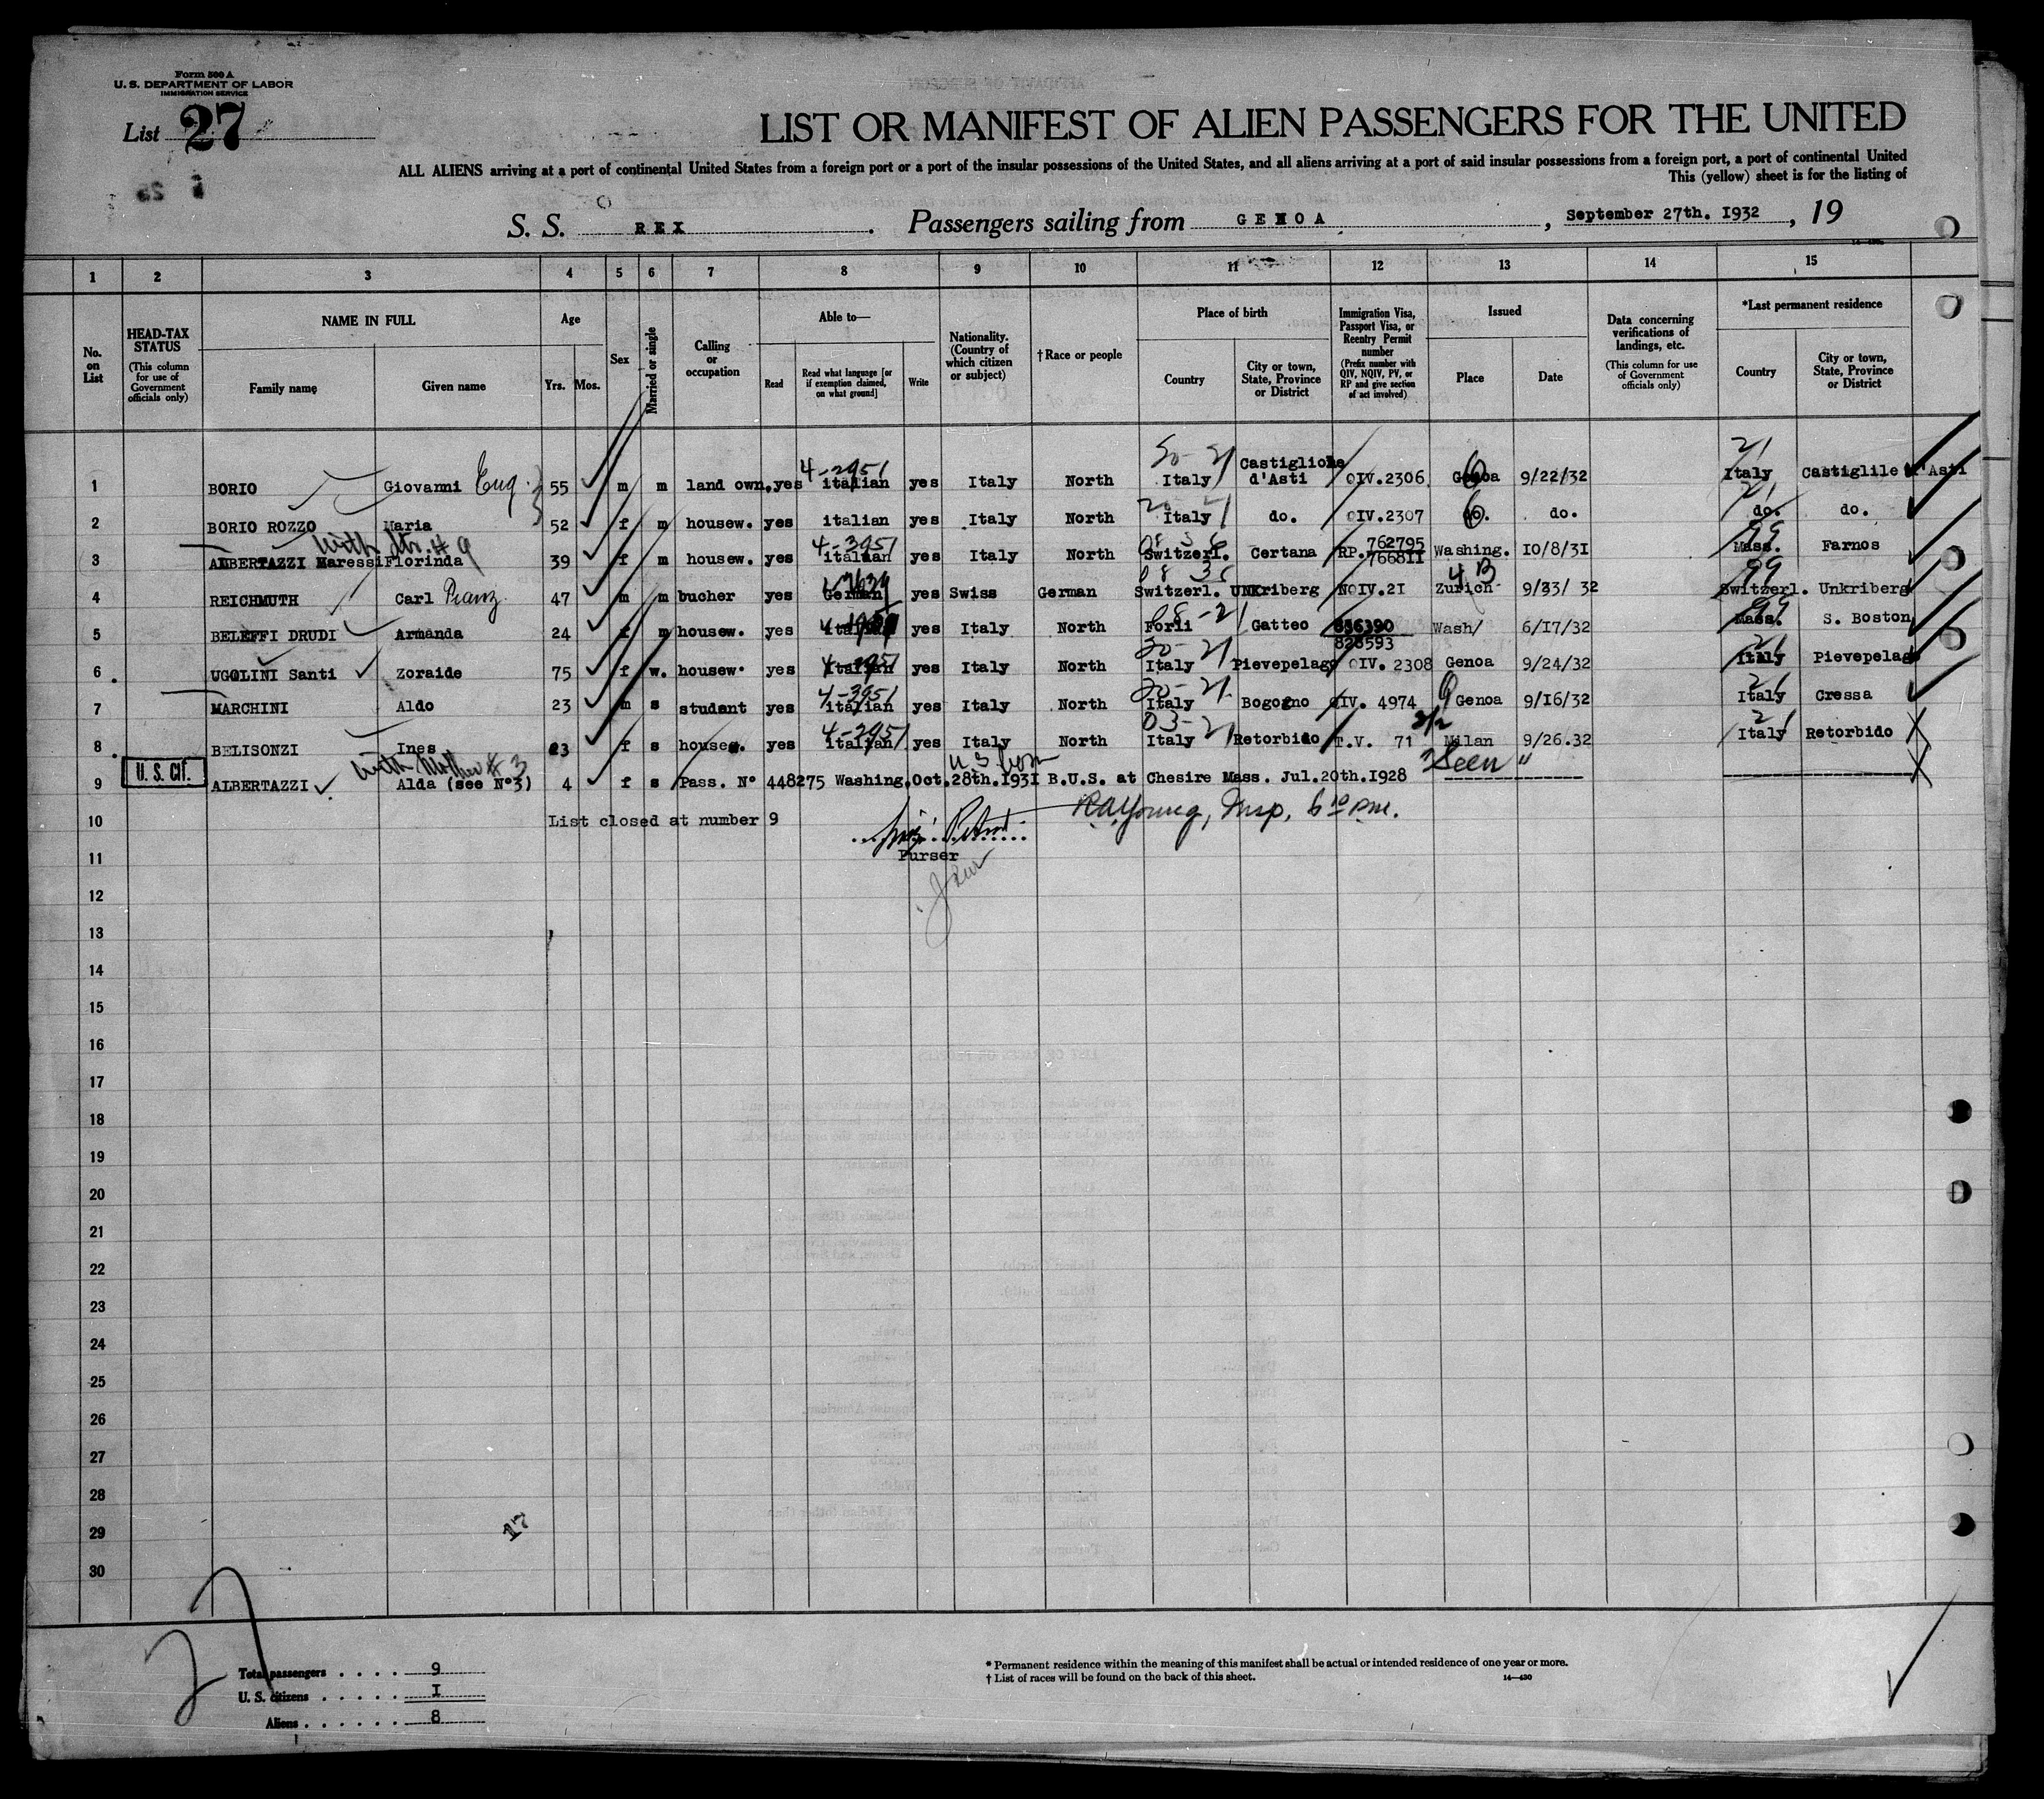 Form 500 A
U. S. DEPARTMENT OF LABOR
IMMIGRATION SERVICE
List 27
LIST OR MANIFEST OF ALIEN PASSENGERS FOR THE UNITED
ALL ALIENS arriving at a port of continental United States from a foreign port or a port of the insular possessions of the United States, and all aliens arriving at a port of said insular possessions from a foreign port, a port of continental United
This (yellow) sheet is for the listing of
S. S. REX. Passengers sailing from GENOA, September 27th. 1932, 19
1 2 3 4 5 6 7 8 9 10 11 12 13 14 15
No. on List
HEAD-TAX STATUS (This column for use of Government officials only)
NAME IN FULL Family name Given name
Age Yrs. Mos.
Sex
Married or single
Calling or occupation
Able to— Read Read what language [or if exemption claimed, on what ground] Write
Nationality. (Country of which citizen or subject)
†Race or people
Place of birth Country City or town, State, Province or District
Immigration Visa, Passport Visa, or Reentry Permit number (Prefix number with QIV, NQIV, PV, or RP and give section of act involved)
Issued Place Date
Data concerning verifications of landings, etc. (This column for use of Government officials only)
*Last permanent residence Country City or town, State, Province or District
1 BORIO Giovanni Eug. 55 m m land own. yes italian yes Italy North Italy Castiglione d'Asti QIV.2306 Genoa 9/22/32 Italy Castiglile d'Asti
2 BORIO ROZZO Maria 52 f m housew. yes italian yes Italy North Italy do. QIV.2307 do. do. do. do.
with dtr. # 9
3 ALBERTAZZI Maressi Florinda 39 f m housew. yes italian yes Italy North Switzerl. Certana RP. 762795 766811 Washing. 10/8/31 Mass. Farnos
4 REICHMUTH Carl Franz. 47 m m bucher yes German yes Swiss German Switzerl. UNKriberg NQIV.21 Zurich 9/33/ 32 Switzerl. Unkriberg
5 BELEFFI DRUDI Armanda 24 f m housew. yes italian yes Italy North Forli Gatteo 836390 828593 Wash/ 6/17/32 Mass. S. Boston
6 UGOLINI Santi Zoraide 75 f w. housew. yes Italian yes Italy North Italy Pievepelago QIV. 2308 Genoa 9/24/32 Italy Pievepelago
7 MARCHINI Aldo 23 m s student yes italian yes Italy North Italy Bogogno QIV. 4974 Genoa 9/16/32 Italy Cressa
8 BELISONZI Ines 23 f s housew. yes italian yes Italy North Italy Retorbido T.V. 71 Milan 9/26.32 Italy Retorbido
with Mother # 3 U.S. born Seen "
U. S. CIT.
9 ALBERTAZZI Alda (see N°3) 4 f s Pass. N° 448275 Washing.Oct.28th.1931 B.U.S. at Chesire Mass. Jul.20th.1928
10 List closed at number 9 RAYoung, Insp. 6 10 P.M.
11 Purser
12
13
14
15
16
17
18
19
20
21
22
23
24
25
26
27
28
29
30
17
27
Total passengers . . . . 9
U. S. citizens . . . . . 1
Aliens . . . . . . 8
* Permanent residence within the meaning of this manifest shall be actual or intended residence of one year or more.
† List of races will be found on the back of this sheet.
14—430